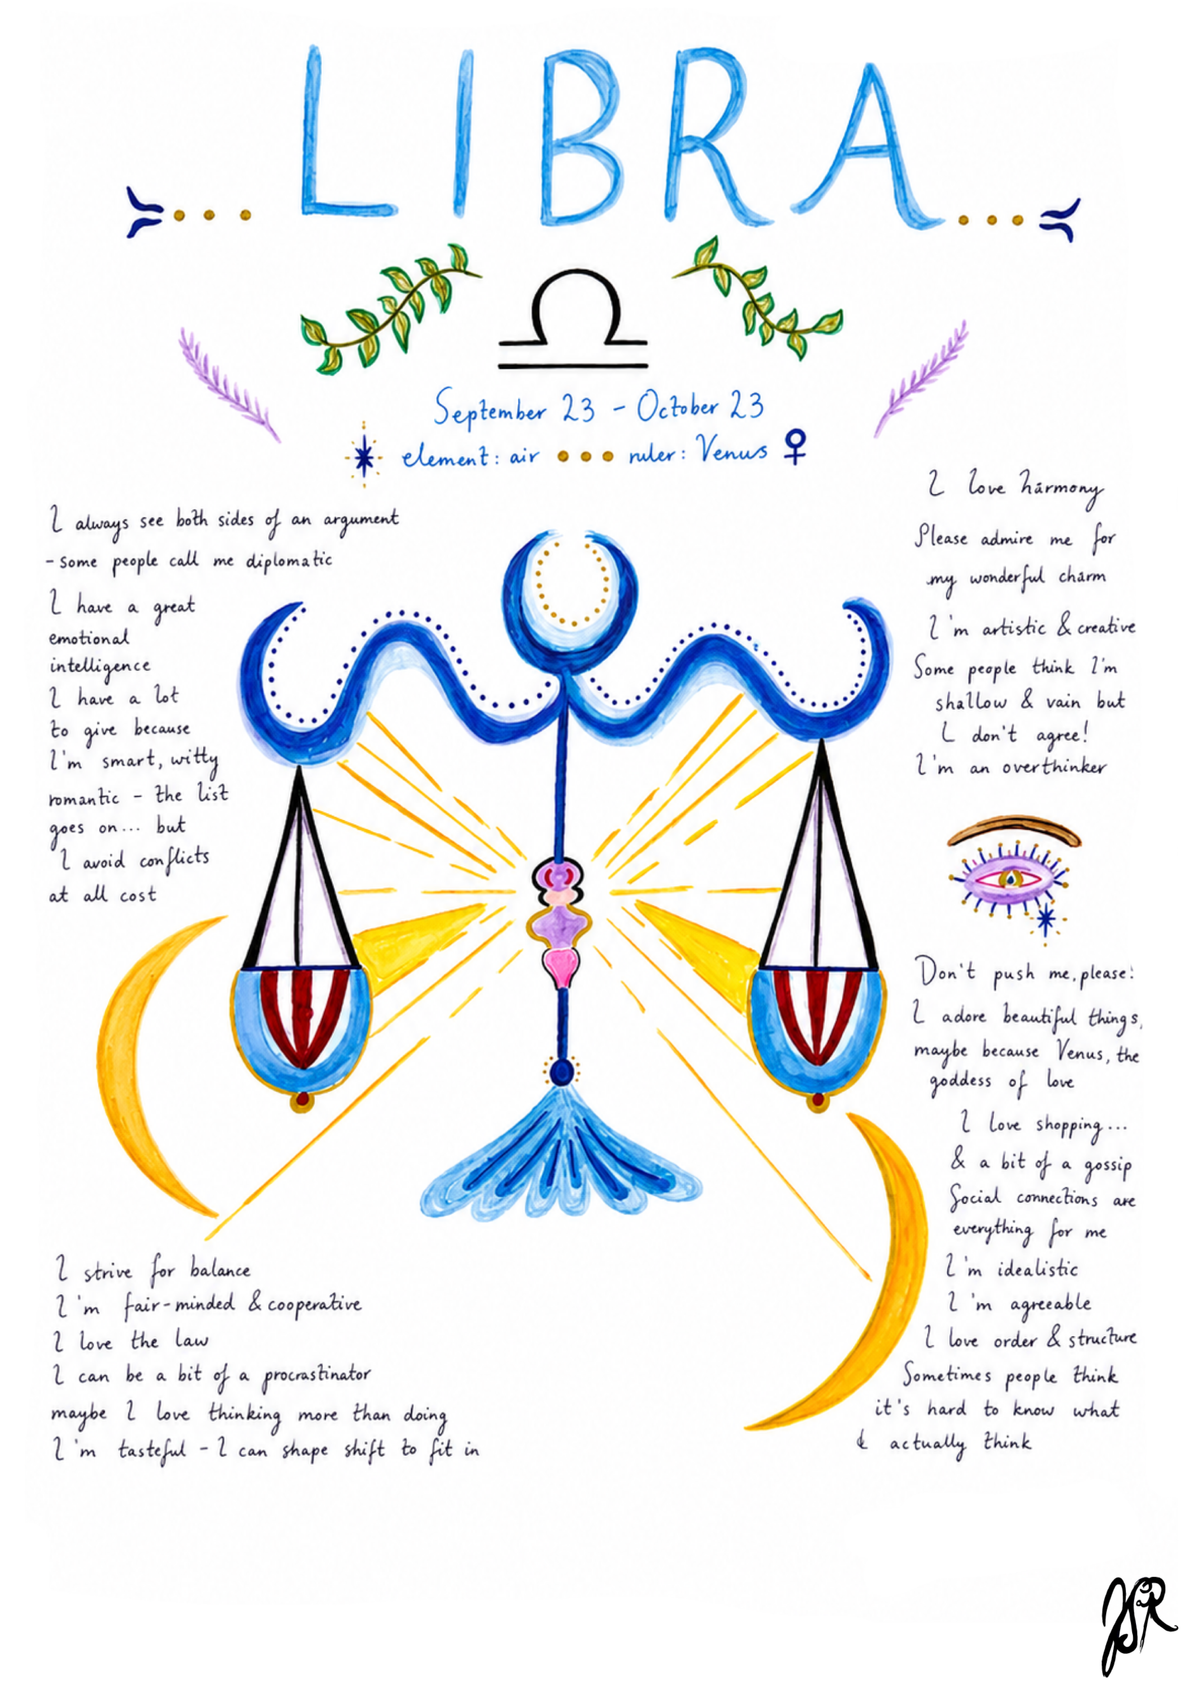 LIBRA
September 23 - October 23
element: air ruler: Venus
I always see both sides of an argument
- some people call me diplomatic
I have a great
emotional
intelligence
I have a lot
to give because
I'm smart, witty
romantic - the list
goes on... but
I avoid conflicts
at all cost
I strive for balance
I'm fair-minded & cooperative
I love the law
I can be a bit of a procrastinator
maybe I love thinking more than doing
I'm tasteful - I can shape shift to fit in
I love harmony
Please admire me for
my wonderful charm
I'm artistic & creative
Some people think I'm
shallow & vain but
I don't agree!
I'm an overthinker
Don't push me, please!
I adore beautiful things,
maybe because Venus, the
goddess of love
I love shopping...
& a bit of a gossip
Social connections are
everything for me
I'm idealistic
I'm agreeable
I love order & structure
Sometimes people think
it's hard to know what
I actually think